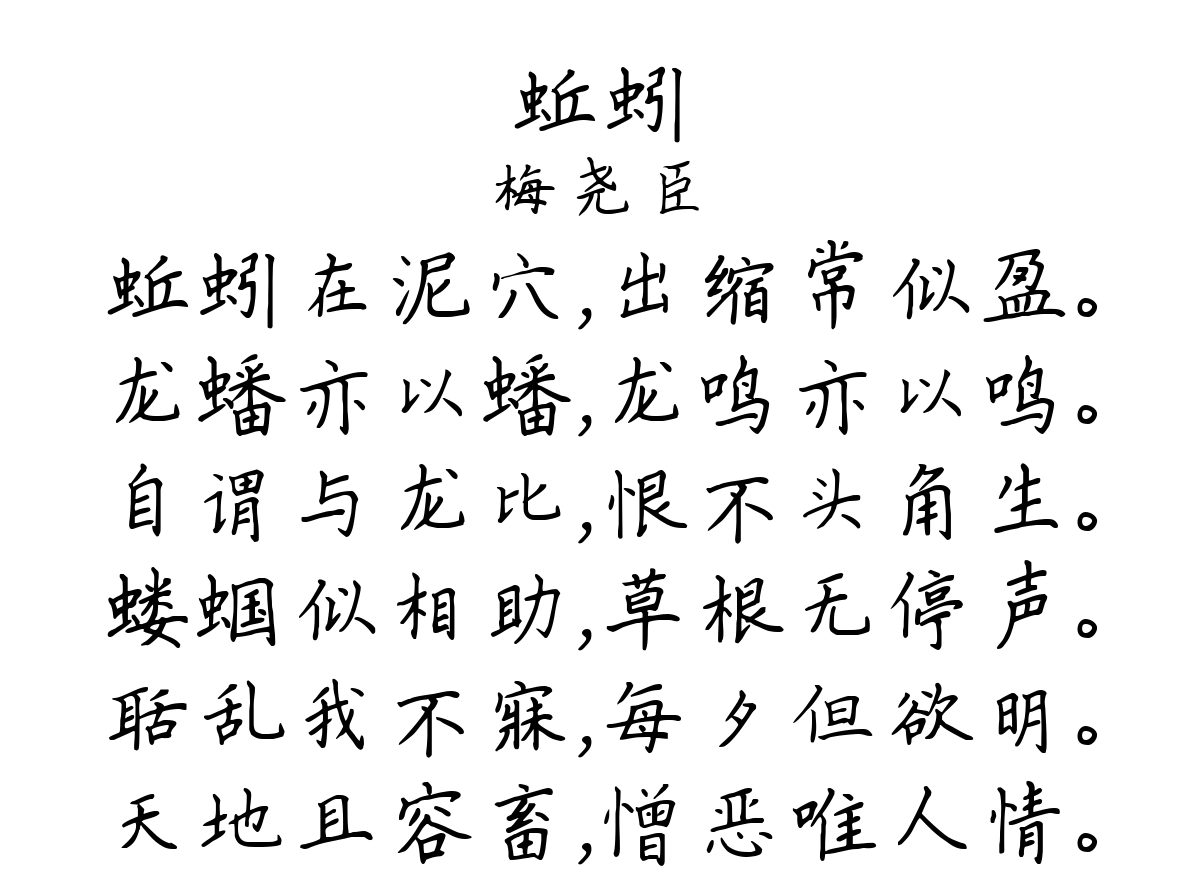 蚯蚓
梅尧臣
蚯蚓在泥穴,出缩常似盈。
龙蟠亦以蟠,龙鸣亦以鸣。
自谓与龙比,恨不头角生。
蝼蝈似相助,草根无停声。
聒乱我不寐,每夕但欲明。
天地且容畜,憎恶唯人情。